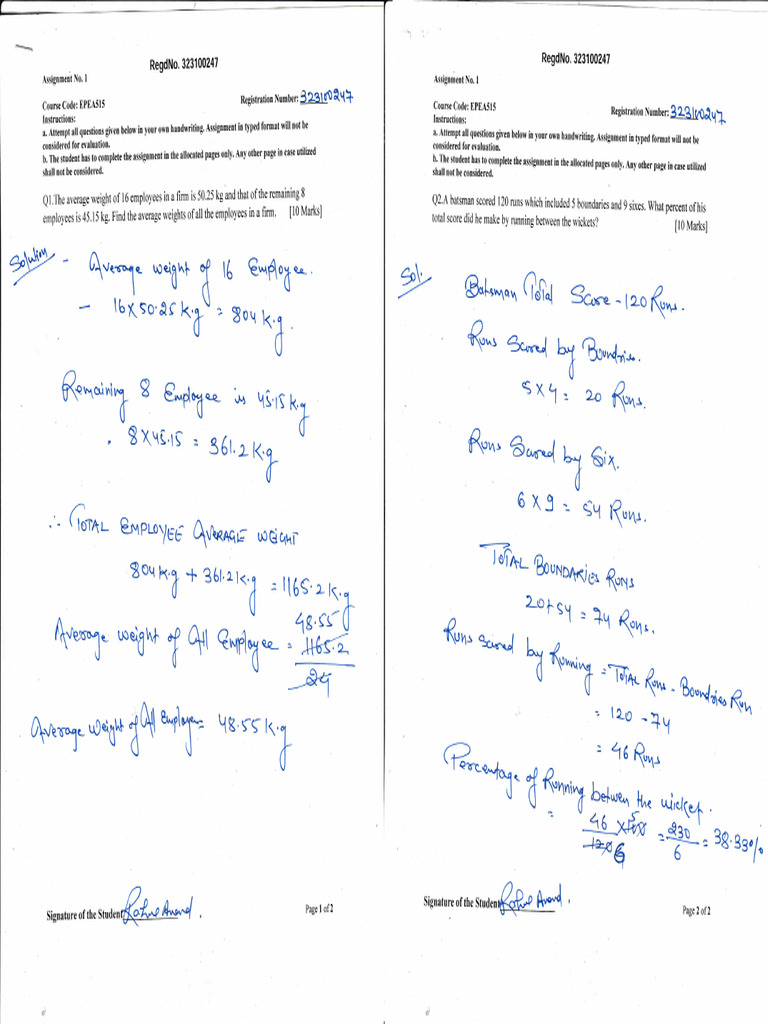 RegdNo. 323100247
Assignment No. 1
Course Code: EPEA515
Registration Number: 323100247
Instructions:
a. Attempt all questions given below in your own handwriting. Assignment in typed format will not be
considered for evaluation.
b. The student has to complete the assignment in the allocated pages only. Any other page in case utilized
shall not be considered.
Q1.The average weight of 16 employees in a firm is 50.25 kg and that of the remaining 8
employees is 45.15 kg. Find the average weights of all the employees in a firm. [10 Marks]
Solution - Average weight of 16 Employee.
- 16 X 50.25 K.g = 804 K.g.
Remaining 8 Employee is 45.15 K.g
. 8 X 45.15 = 361.2 K.g
∴ TOTAL EMPLOYEE AVERAGE WEIGHT
804 K.g + 361.2 K.g = 1165.2 K.g
48.55
Average weight of All Employee = 1165.2
24
Average Weight of All Employee = 48.55 K.g
Signature of the Student Rahul Anand.
Page 1 of 2
RegdNo. 323100247
Assignment No. 1
Course Code: EPEA515
Registration Number: 323100247
Instructions:
a. Attempt all questions given below in your own handwriting. Assignment in typed format will not be
considered for evaluation.
b. The student has to complete the assignment in the allocated pages only. Any other page in case utilized
shall not be considered.
Q2.A batsman scored 120 runs which included 5 boundaries and 9 sixes. What percent of his
total score did he make by running between the wickets? [10 Marks]
Sol. Batsman Total Score - 120 Runs.
Runs Scored by Boundries.
5 X 4 = 20 Runs.
Runs Scored by Six.
6 X 9 = 54 Runs.
TOTAL BOUNDARIES RUNS
20+54 = 74 Runs.
Runs Scored by Running = Total Runs - Boundries Run
= 120 - 74
= 46 Runs
Percentage of Running betwen the wicket.
= 46 X 100 5 = 230 = 38.33%
120 6 6
Signature of the Student Rahul Anand.
Page 2 of 2